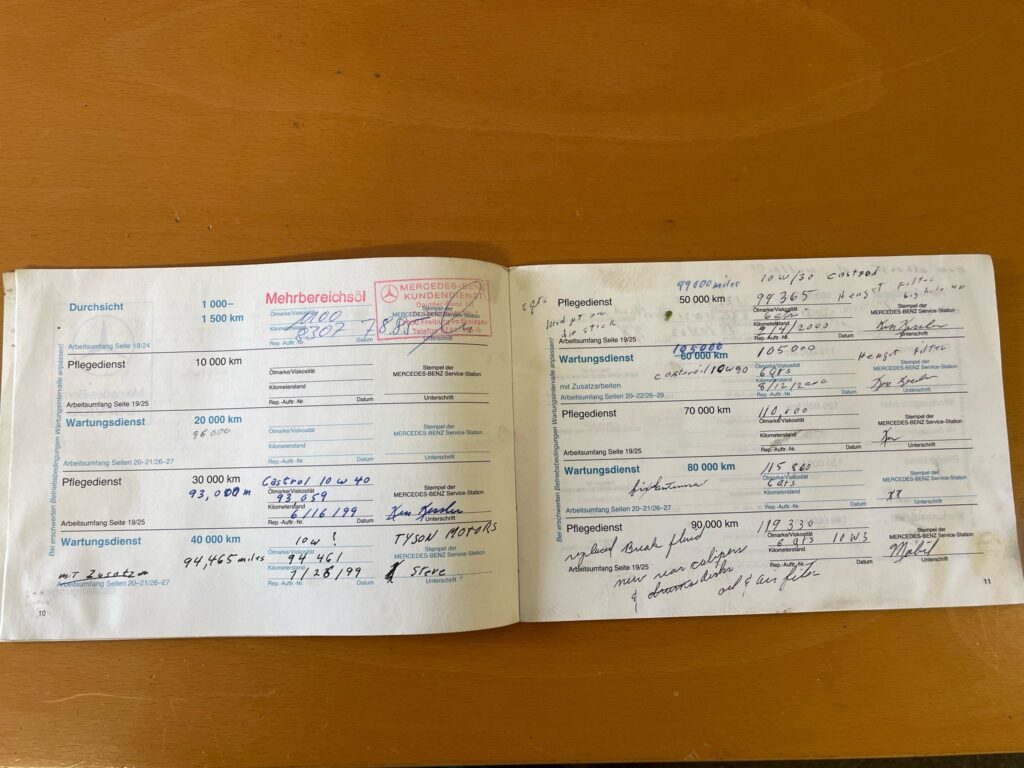 Bei erschwerten Betriebsbedingungen Wartungsintervalle anpassen!
Durchsicht
1 000–
1 500 km
Mehrbereichsöl
Ölmarke/Viskosität
1100
Kilometerstand
8307 7 8.85
Rep.-Auftr.-Nr. Datum
MERCEDES-BENZ
KUNDENDIENST
Daimler-Benz AG
Stempel der
MERCEDES-BENZ Service-Station
Freiburg im Breisgau
Unterschrift
Arbeitsumfang Seite 18/24
Pflegedienst
10 000 km
Ölmarke/Viskosität
Kilometerstand
Rep.-Auftr.-Nr. Datum
Stempel der
MERCEDES-BENZ Service-Station
Unterschrift
Arbeitsumfang Seite 19/25
Wartungsdienst
20 000 km
96 000
Ölmarke/Viskosität
Kilometerstand
Rep.-Auftr.-Nr. Datum
Stempel der
MERCEDES-BENZ Service-Station
Unterschrift
Arbeitsumfang Seiten 20–21/26–27
Pflegedienst
30 000 km
93,000 m
Castrol 10 w 40
Ölmarke/Viskosität
93 059
Kilometerstand
6/16/99
Rep.-Auftr.-Nr. Datum
Stempel der
MERCEDES-BENZ Service-Station
Ken Kessler
Unterschrift
Arbeitsumfang Seite 19/25
Wartungsdienst
40 000 km
94,465 miles
10w!
Ölmarke/Viskosität
94 461
Kilometerstand
7/28/99
Rep.-Auftr.-Nr. Datum
TYSON MOTORS
Stempel der
MERCEDES-BENZ Service-Station
Steve
Unterschrift
mit Zusatzm
Arbeitsumfang Seiten 20–21/26–27
10
Bei erschwerten Betriebsbedingungen Wartungsintervalle anpassen!
Pflegedienst
99000 miles
50 000 km
10 w/30 Castrol
99 365 Hengst Filter
Ölmarke/Viskosität
6 qts
Kilometerstand
2/4/2000
Rep.-Auftr.-Nr. Datum
big hole
Stempel der
MERCEDES-BENZ Service-Station
Ken Kessler
Unterschrift
dip stick
Arbeitsumfang Seite 19/25
Wartungsdienst
105000
60 000 km
105 000
Hengst filter
Ölmarke/Viskosität
6 qts
Kilometerstand
Rep.-Auftr.-Nr. Datum
Stempel der
MERCEDES-BENZ Service-Station
Unterschrift
mit Zusatzarbeiten
Arbeitsumfang Seiten 20–22/26–29
Pflegedienst
70 000 km
110,000
Ölmarke/Viskosität
Kilometerstand
Rep.-Auftr.-Nr. Datum
Stempel der
MERCEDES-BENZ Service-Station
Ken
Unterschrift
Arbeitsumfang Seite 19/25
Wartungsdienst
80 000 km
115 860
Ölmarke/Viskosität
6 qts
Kilometerstand
Rep.-Auftr.-Nr. Datum
Stempel der
MERCEDES-BENZ Service-Station
KK
Unterschrift
fix antenna
Arbeitsumfang Seiten 20–21/26–27
Pflegedienst
90 000 km
119 330
Ölmarke/Viskosität
6 qts 10 W3
Kilometerstand
Rep.-Auftr.-Nr. Datum
Stempel der
MERCEDES-BENZ Service-Station
Mobil
Unterschrift
replaced Break fluid
Arbeitsumfang Seite 19/25
new rear calipers
& drums disks
oil & air filter
11